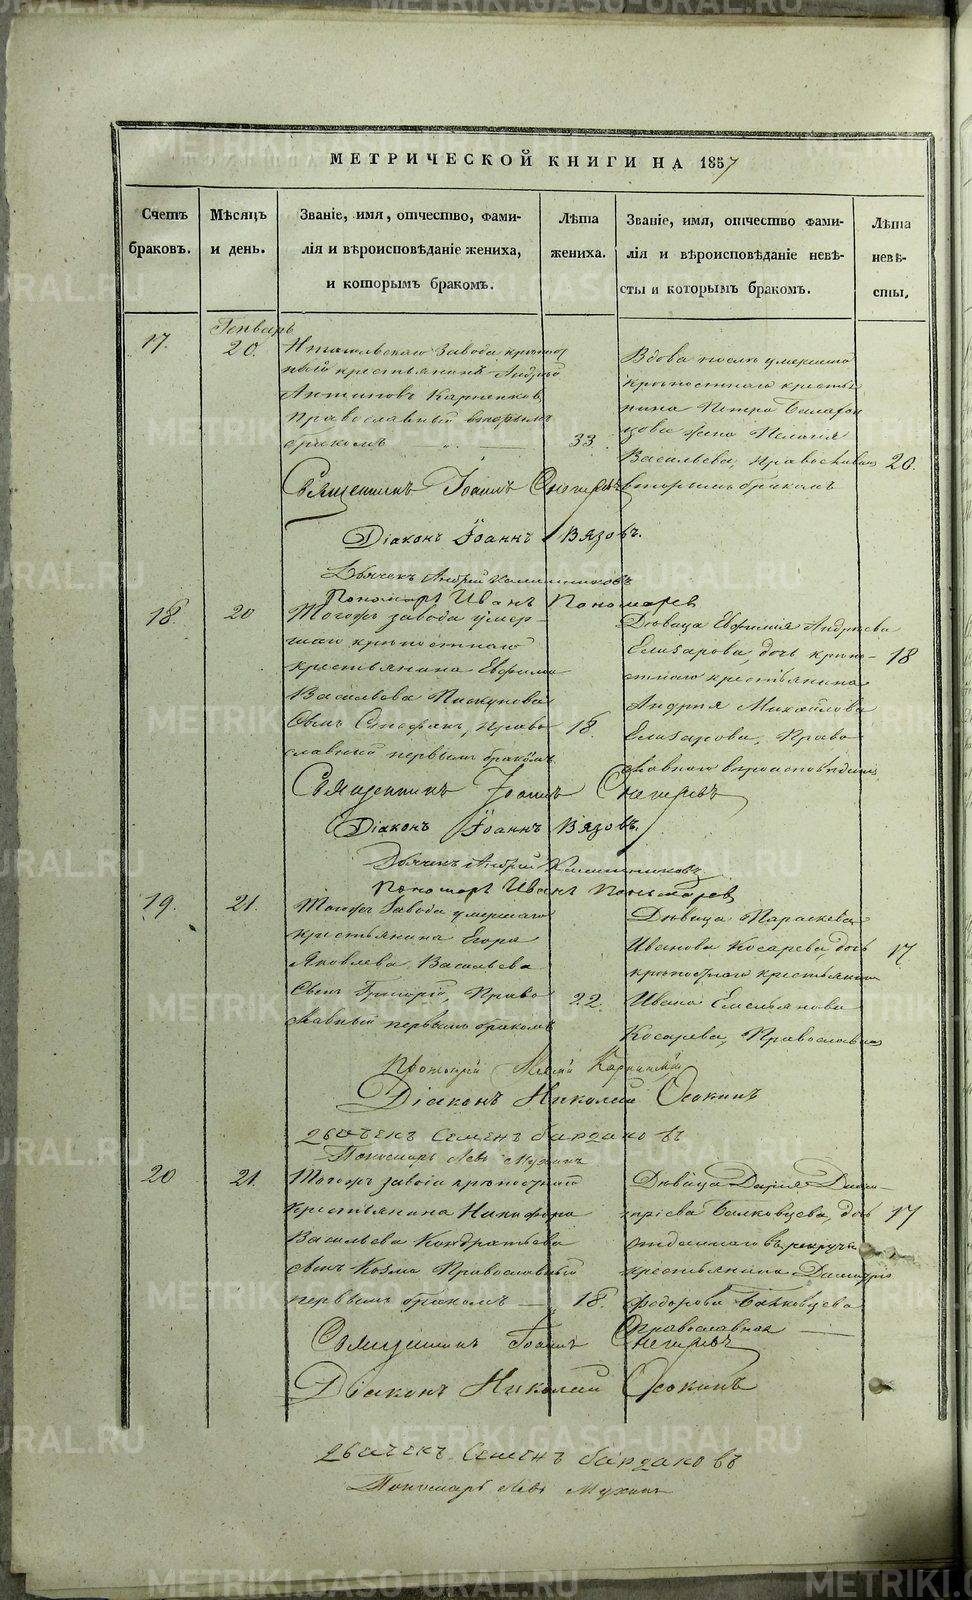 МЕТРИЧЕСКОЙ КНИГИ НА 1857
Счетъ браковъ.
Мѣсяцъ и день.
Званіе, имя, отчество, фами-
лія и вѣроисповѣданіе жениха,
и которымъ бракомъ.
Лѣта жениха.
Званіе, имя, отчество фами-
лія и вѣроисповѣданіе невѣ-
сты и которымъ бракомъ.
Лѣта невѣ-
сты.
17.
Генварь
20.
завода
крестьянинъ Андрей
Антиповъ Карпенковъ
Православный вторымъ
бракомъ
33.
Вдова послѣ умершаго
крѣпостнаго крестья
нина Петра
жена Пелагія
Васильева, Православная
вторымъ бракомъ
20.
Священникъ Іоаннъ Снегиревъ
Діаконъ Іоаннъ Вязовъ.
Дьячекъ Андрей Калашниковъ
Пономарь Иванъ Пономарев
18.
20
Тогожъ завода умер-
шаго крѣпостнаго
крестьянина Евфима
Васильева Пискунова
Сынъ Стефанъ, Право
славный первымъ бракомъ
18.
Дѣвица Евфимія Андреева
Елизарова, дочь крѣпо-
стнаго крестьянина
Андрея Михайлова
Елизарова, Право
славнаго вѣроисповѣданія
18
Священникъ Іоаннъ Снегиревъ
Діаконъ Іоаннъ Вязовъ.
Дьячекъ Андрей Калашниковъ
Пономарь Иванъ Пономарев
19.
21.
Тогожъ Завода умершаго
крестьянина Егора
Яковлева Васильева
Сынъ Григорій, Право
славный первымъ бракомъ
22.
Дѣвица Параскева
Иванова Косарева, дочь
крѣпостнаго крестьянина
Ивана Емельянова
Косарева, Православная
17
Протоіерей
Діаконъ Николай Осокинъ
дьячекъ Семенъ Бардаковъ
Пономарь Левъ Мухинъ
20
21.
Тогожъ завода крѣпостнаго
Крестьянина Никифора
Васильева Кондратьева
сынъ Козма Православный
первымъ бракомъ —
18.
Дѣвица Дарія Дими-
тріева Балковцева, дочь
отданнаго въ рекруты
крестьянина Димитрія
Федорова Балковцева
православная
17
Священникъ Іоаннъ Снегиревъ
Діаконъ Николай Осокинъ
дьячекъ Семенъ Бардаковъ
Пономарь Левъ Мухинъ
METRIKI.GASO-URAL.RU